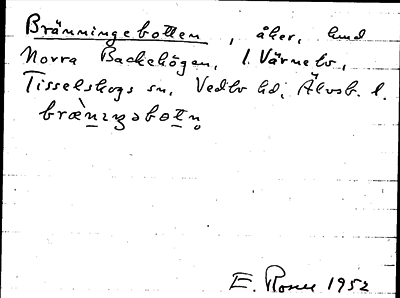 Bränningebotten, åker, hmd
Norra Backehögen, l. Värnebo,
Tisselskogs sn, Vedbo hd, Älvsb. l.
bræ̀nıŋəbɵtn̥
E. Rosell 1952